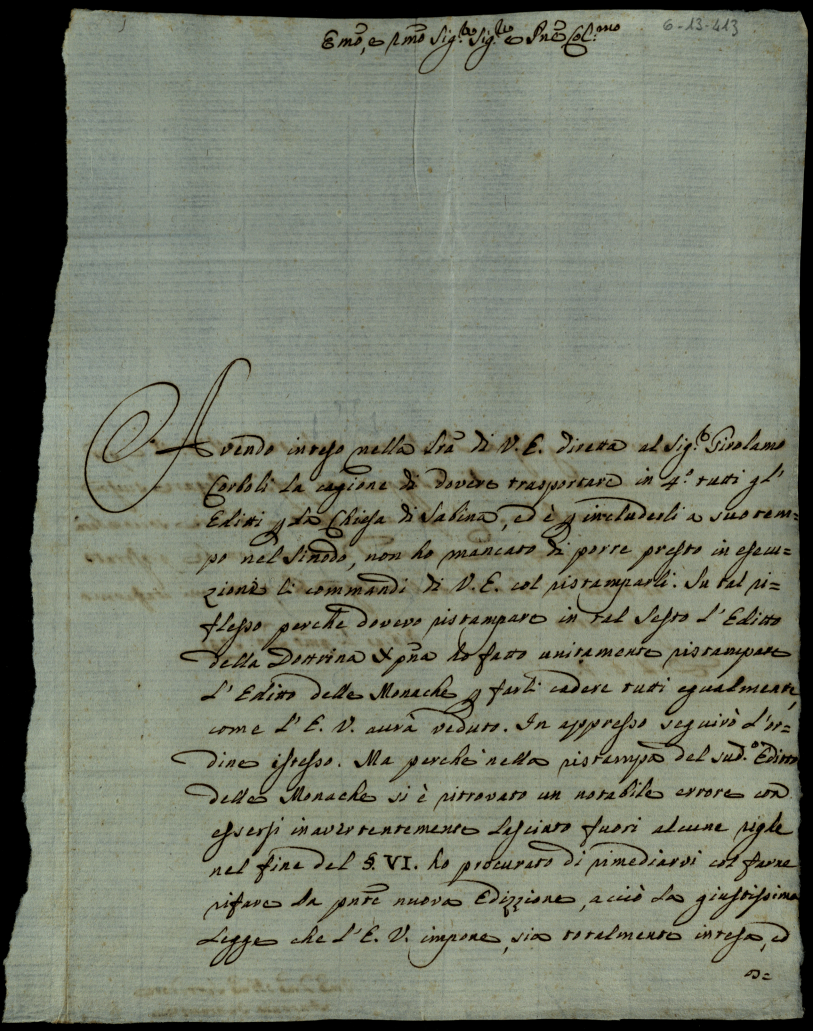 6-13-413
Emo, e Rmo Sig.re Sig.re e Pne Col.mo
Avendo inteso nella Lra di V. E. diretta al Sig.r Girolamo
Corboli la cagione di dovere trasportare in 4.o tutti gl'
Editti p la Chiesa di Sabina, ed è p includerli a suo tem=
po nel Sinodo, non ho mancato di porre presto in esecu=
zione li commandi di V. E. col ristamparli. Su tal ri=
flesso perche dovevo ristampare in tal Sesto l'Editto
della Dottrina Xpna ho fatto unitamente ristampare
l'Editto delle Monache p farli cadere tutti egualmente,
come l'E. V. aurà veduto. In appresso seguirò l'or=
dine istesso. Ma perche nella ristampa del sud.o Editto
delle Monache si è ritrovato un notabile errore con
essersi inavertentemente lasciato fuori alcune righe
nel fine del §. VI. ho procurato di rimediarvi col farne
rifare la pnte nuova Edizzione, acciò la giustissima
Legge che l'E. V. impone, sia totalmente intesa, ed
o=